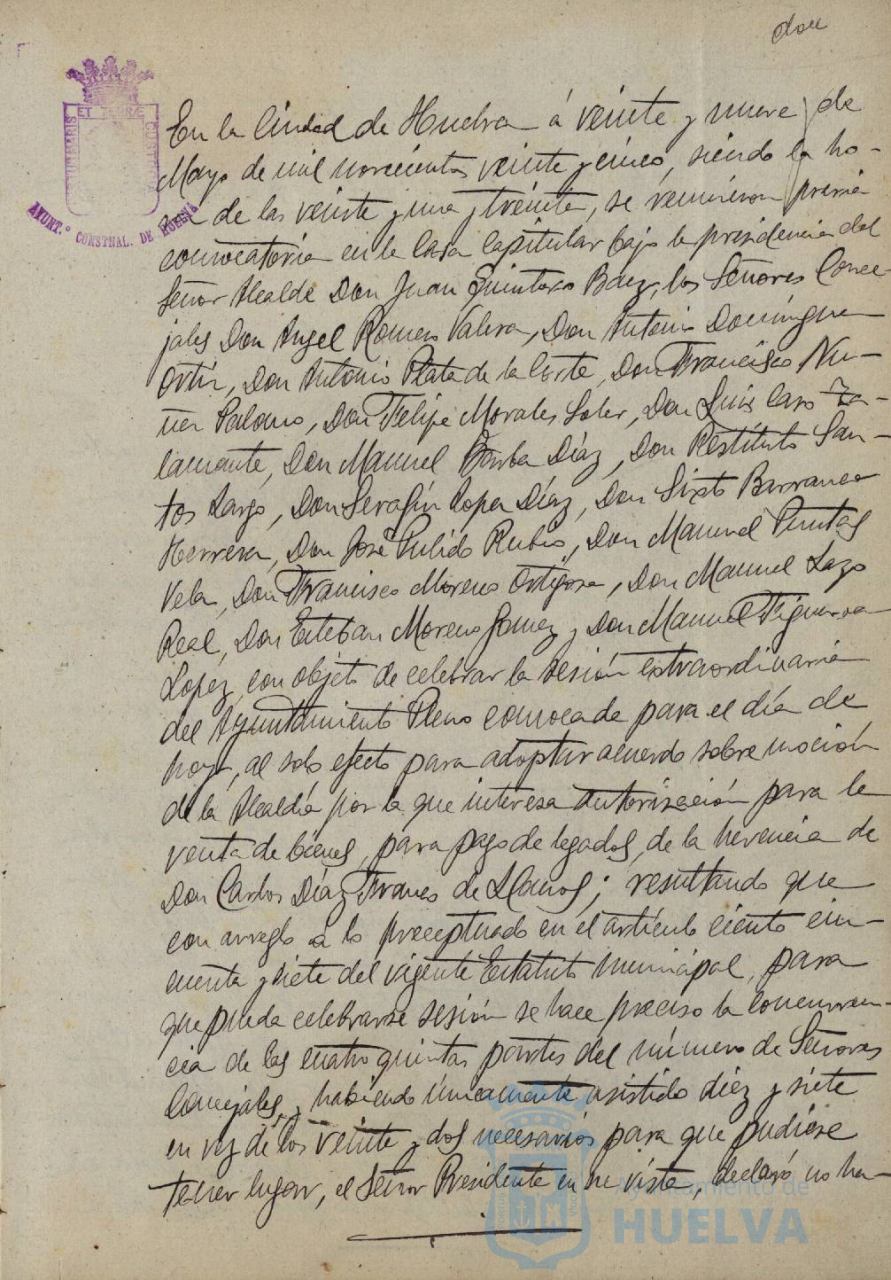 dos
PORTUS MARIS ET TERRÆ CUSTODIA
AYUNT.º CONSTNAL. DE HUELVA
En la Ciudad de Huelva á veinte y nueve de
Mayo de mil novecientos veinte y cinco, siendo la ho-
ra de las veinte y una y treinta, se reunieron previa
convocatoria en la Casa Capitular bajo la presidencia del
Señor Alcalde Don Juan Quintero Baez, los Señores Conce-
jales Don Angel Romero Valera, Don Antonio Domínguez
Ortiz, Don Antonio Plata de la Corte, Don Francisco Nu-
ñez Palomo, Don Felipe Morales Soler, Don Luis Caro
lamante, Don Manuel Barba Díaz, Don Restituto San-
tos Largo, Don Serafín Lopez Díaz, Don Sixto Barranco
Herrera, Don José Pulido Rubio, Don Manuel Puntas
Vela, Don Francisco Moreno Ortigosa, Don Manuel Lazo
Real, Don Esteban Moreno Gomez y Don Manuel Figueroa
Lopez, con objeto de celebrar la sesión extraordinaria
del Ayuntamiento Pleno convocada para el día de
hoy, al solo efecto para adoptar acuerdo sobre moción
de la Alcaldía por la que interesa autorización para la
venta de bienes, para pago de legados, de la herencia de
Don Carlos Díaz Franco de Llanos; resultando que
con arreglo a lo preceptuado en el artículo ciento cin-
cuenta y siete del vigente Estatuto municipal, para
que pueda celebrarse sesión se hace preciso la concurren-
cia de las cuatro quintas partes del número de Señores
Concejales, y habiendo únicamente asistido diez y siete
en vez de los veinte y dos necesarios para que pudiese
tener lugar, el Señor Presidente en su vista, declaró no ha-
Ayuntamiento de
HUELVA